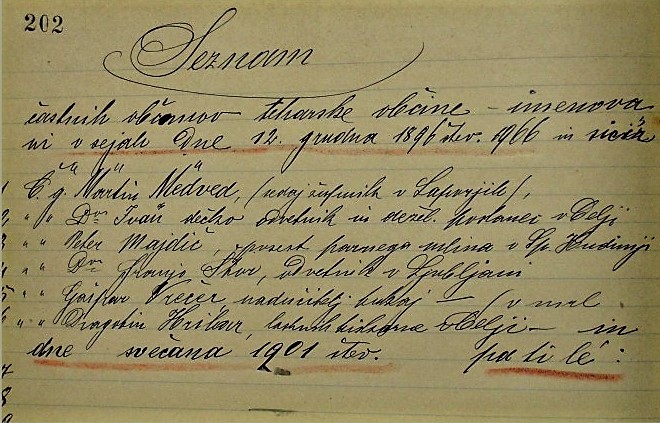 202
Seznam
častnih občanov teharske občine - imenova
ni v sejah dne 12. grudna 1896 štev. 1966 in sicer
1 Č. g. Martin Medved, (sedaj župnik v Laporjih),
2 " " Dr. Ivan Dečko odvetnik in dežel. poslanec v Celji
3 " " Peter Majdič, posest. parnega mlina v Sp. Hudinji
4 " " Dr. Franjo odvetnik v Ljubljani
5 " " Gašpar Vrečer nadučitelj tukaj - (v
6 " " Dragotin Hribar, v Celji - in
dne svečana 1901 štev. pa ti le:
7
8